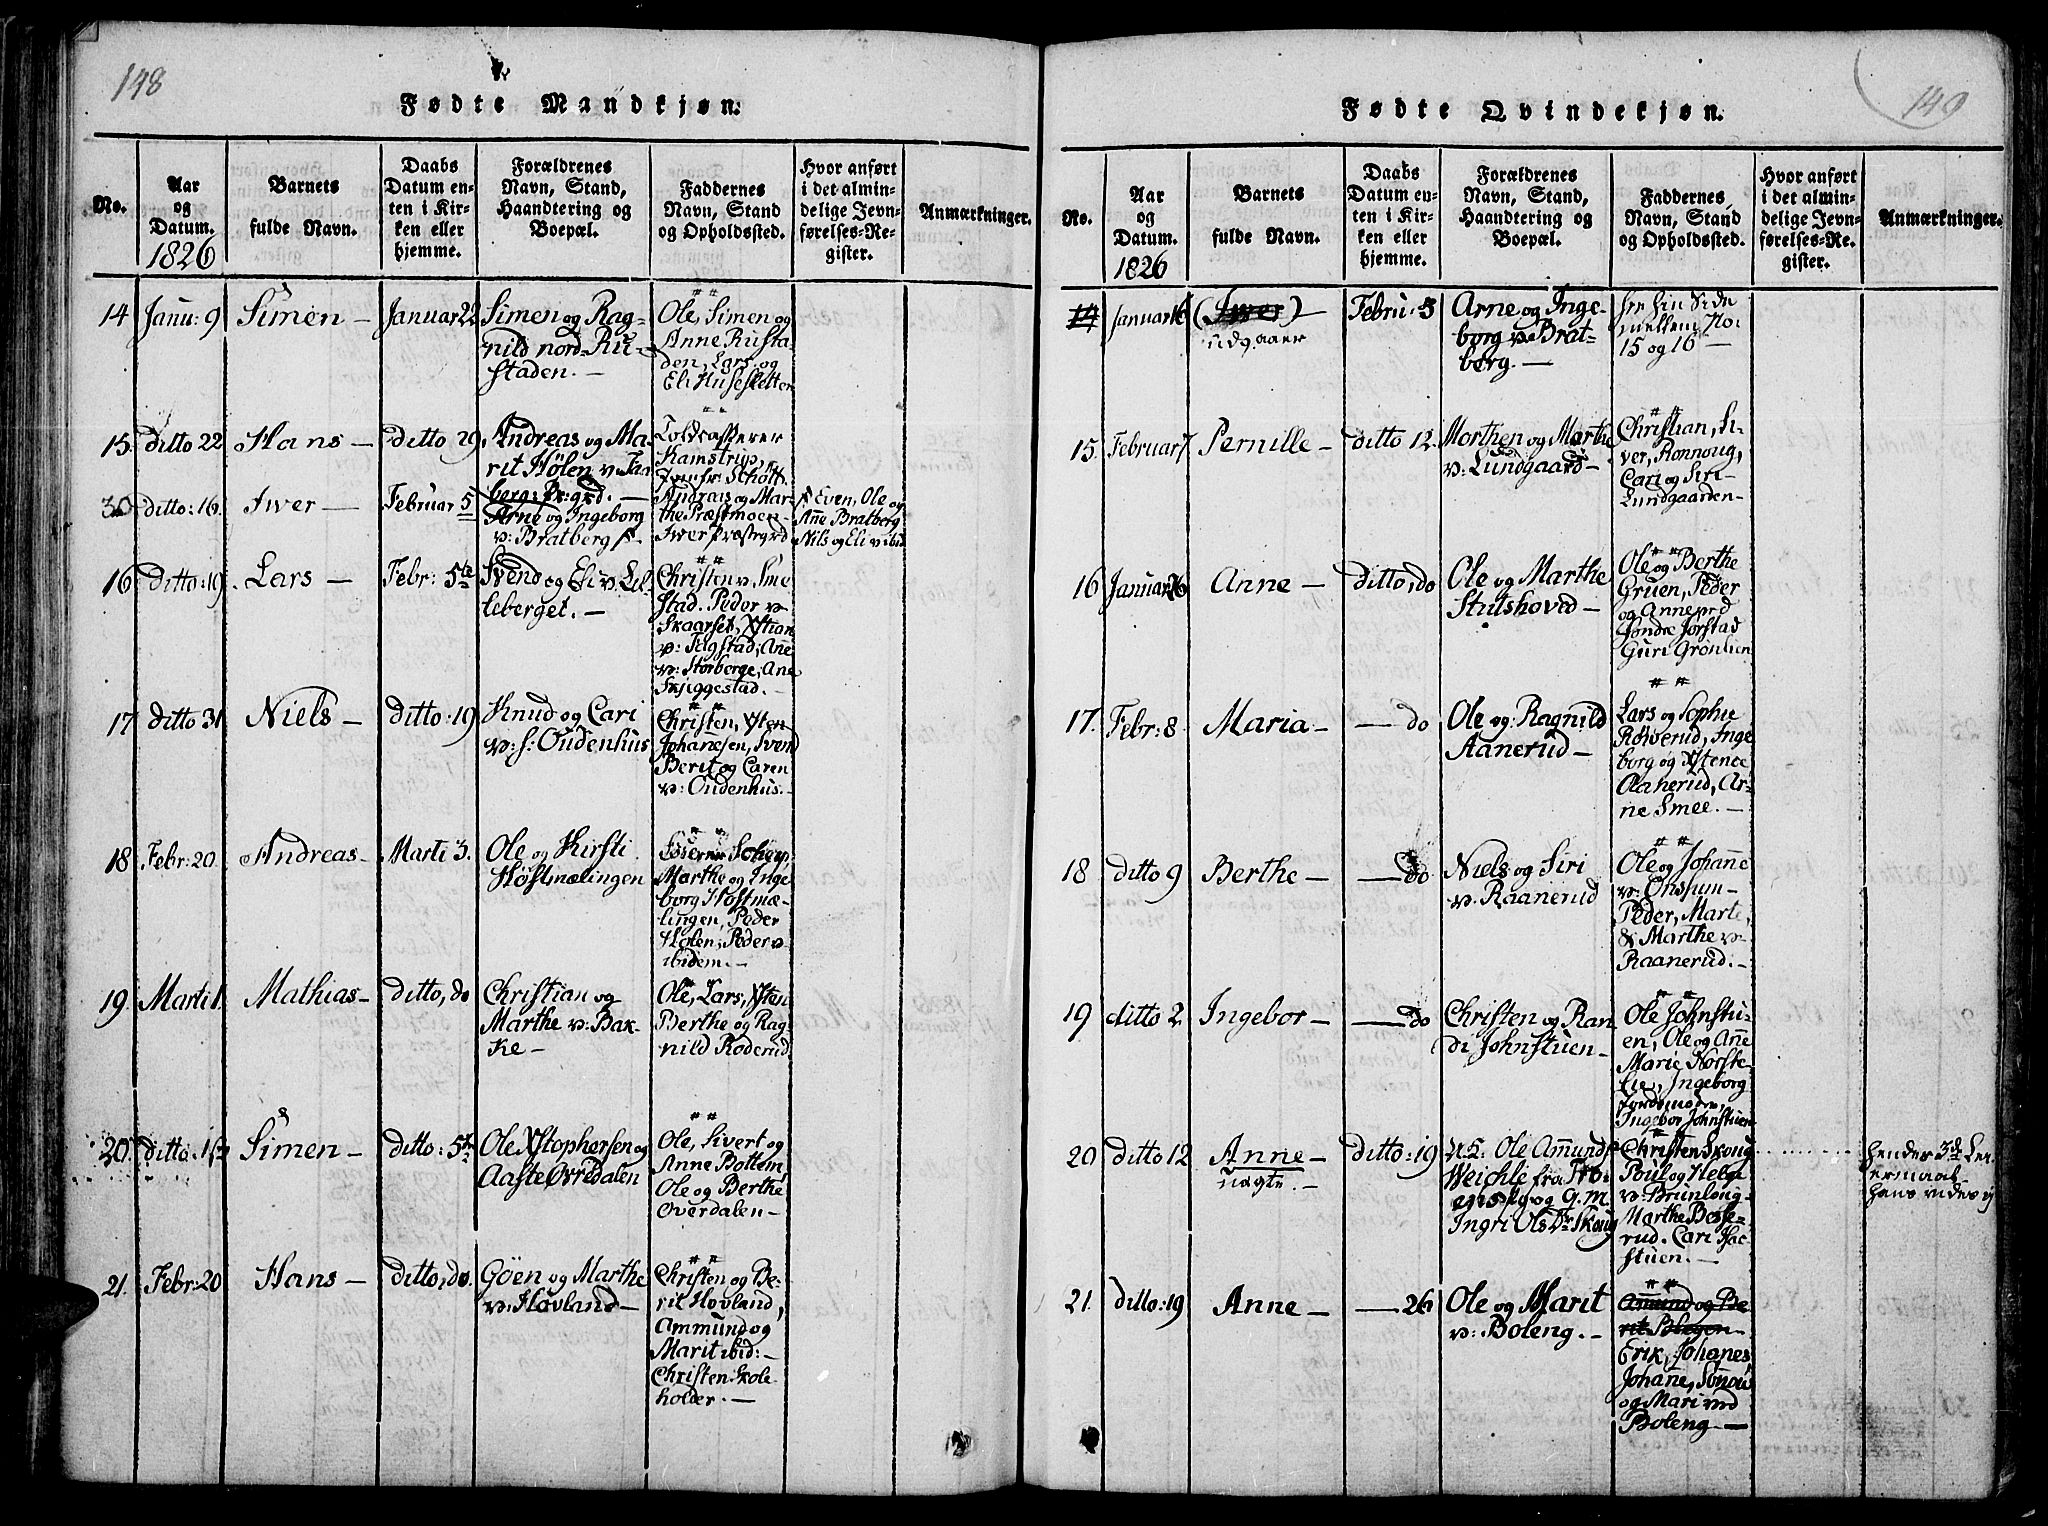 148
Fødte Mandkjøn.
No.
Aar
og
Datum.
1826
Barnets
fulde Navn.
Daabs
Datum en-
ten i Kir-
ken eller
hjemme.
Forældrenes
Navn, Stand,
Haandtering og
Boepæl.
Faddernes
Navn, Stand
og Opholdssted.
Hvor anført
i det almin-
delige Jevn-
førelses-Re-
gister.
Anmærkninger.
14
Janu: 9
Simen —
Januar 22
Simen og Rag-
nild nord-Ru-
staden. —
Ole, Simen og
Anne Rusta-
den, Lars og
Eli Husesletten
15.
ditto 22
Hans —
ditto 29.
Andreas og Ma-
rit Hølen v. Faa-
berg: Pr: grd. —
Toldcasserer
Kamstrup,
Jomfr: Schøtt.
30
ditto: 16.
Iwer —
Februar 5
Arne og Ingeborg
v: Bratberg
Andreas og Mar-
the Præstmoen
Iwer Præstegrd
Even, Ole og
Anne Bratberg
Nils og Eli v ibid
16
ditto: 19.
Lars —
Febr: 5te
Svend og Eli v. Lil-
leberget. —
Christen v. Sme
stad. Peder v
Skaarset, Xstian
v: Fagstad, Ane
v: Storberge, Ane
Skjiggestad. —
17
ditto 31
Niels —
ditto: 19
Knud og Cari
v: s: Oudenhus
Christen, Xsten
Johannesen, Svend
Berit og Caren
v: Oudenhus. —
18
Febr: 20.
Andreas —
Marti 3.
Ole og Kirsti
Høstmælingen
Marthe og Inge
borg Høstmæ-
lingen, Peder
Holen, Peder v
ibidem. —
19.
Marti 1.
Mathias —
ditto, do
Christian og
Marthe v: Bak-
ke —
Ole, Lars, Xsten
Berthe og Rag-
nild Roderud
20.
ditto
Simen —
ditto: 5te
Ole Xstophersen og
Aaste Øvredalen
Ole, Sivert og
Anne Bottem,
Ole og Berthe
Overdalen —
21.
Febr: 20
Hans —
ditto, do.
Göen og Marthe
v: Hovland —
Christen og Be-
rit Hovland,
Ammund og
Marit ibid: —
Christen Skole
holder. —
149
Fødte Qvindekjøn.
No.
Aar
og
Datum.
1826
Barnets
fulde Navn.
Daabs
Datum en-
ten i Kir-
ken eller
hjemme.
Forældrenes
Navn, Stand,
Haandtering og
Boepæl.
Faddernes
Navn, Stand
og Opholdssted.
Hvor anført
i det almin-
delige Jevn-
førelses-Re-
gister.
Anmærkninger.
14
Januar 16
(Iwer)
udgaaer
Febru: 5
Arne og Inge-
borg v: Brat-
berg. —
see hin Side
mellem No:
15 og 16 —
15.
Februar 7
Pernille —
ditto 12.
Morthen og Marthe
v: Lundgaard —
Christian, Si-
ver, Ronnoug,
Cari og Siri
Lundgaarden —
16
Januar 26
Anne —
ditto, do
Ole og Marthe
Stulshoved —
Ole og Berthe
Gruen, Peder
og Anne prd
Søndre Jorstad
Guri Grønlien
17.
Febr: 8.
Maria —
— do
Ole og Ragnild
Aanerud —
Lars og Sophie
Rølverud, Inge
borg og Xstence
Aanerud, Ar-
ne Smee. —
18
ditto 9
Berthe —
— do
Niels og Siri
v: Raanerud
Ole og Johanne
v: Onssum —
Peder, Marte,
& Marthe v
Raanerud. —
19
ditto 2
Ingebor —
— do
Christen og Ran
di Johnstuen —
Ole Johnstu-
en, Ole og Anne
Marie Norste-
lie, Ingeborg
Jordemoder,
Ingebor Johnstuen
20
ditto 12
Anne —
uægte. —
ditto: 19
N. S. Ole Amunds
Weichle fra
og g. m.
Ingri Ols Dr Skoug
Christen Skoug
Poul og Helge
v: Brunloug —
Marthe Bosse-
rud. Cari Hac
stuen. —
hendes 3de Lei-
ermaal
hans vides ej
21.
ditto: 19
Anne —
— 26
Ole og Marit
v: Boleng. —
Amund og Be
rit
Erik, Johanes,
Johane,
og Mari ved
Boleng —